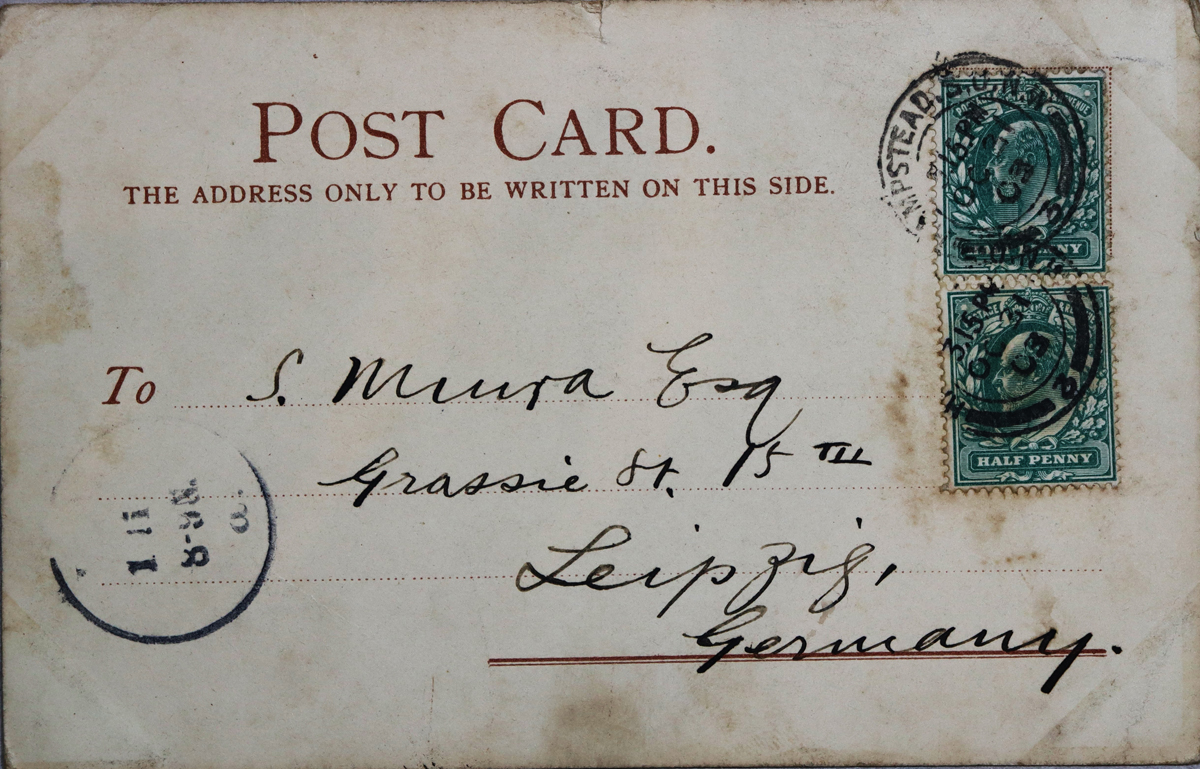 POST CARD.
THE ADDRESS ONLY TO BE WRITTEN ON THIS SIDE.
To S. Miura Esq
Grassie St. 15 III
Leipzig,
Germany.
HALF PENNY
HALF PENNY
3.15 PM
OC 31
03
2
1 11
8-9V.